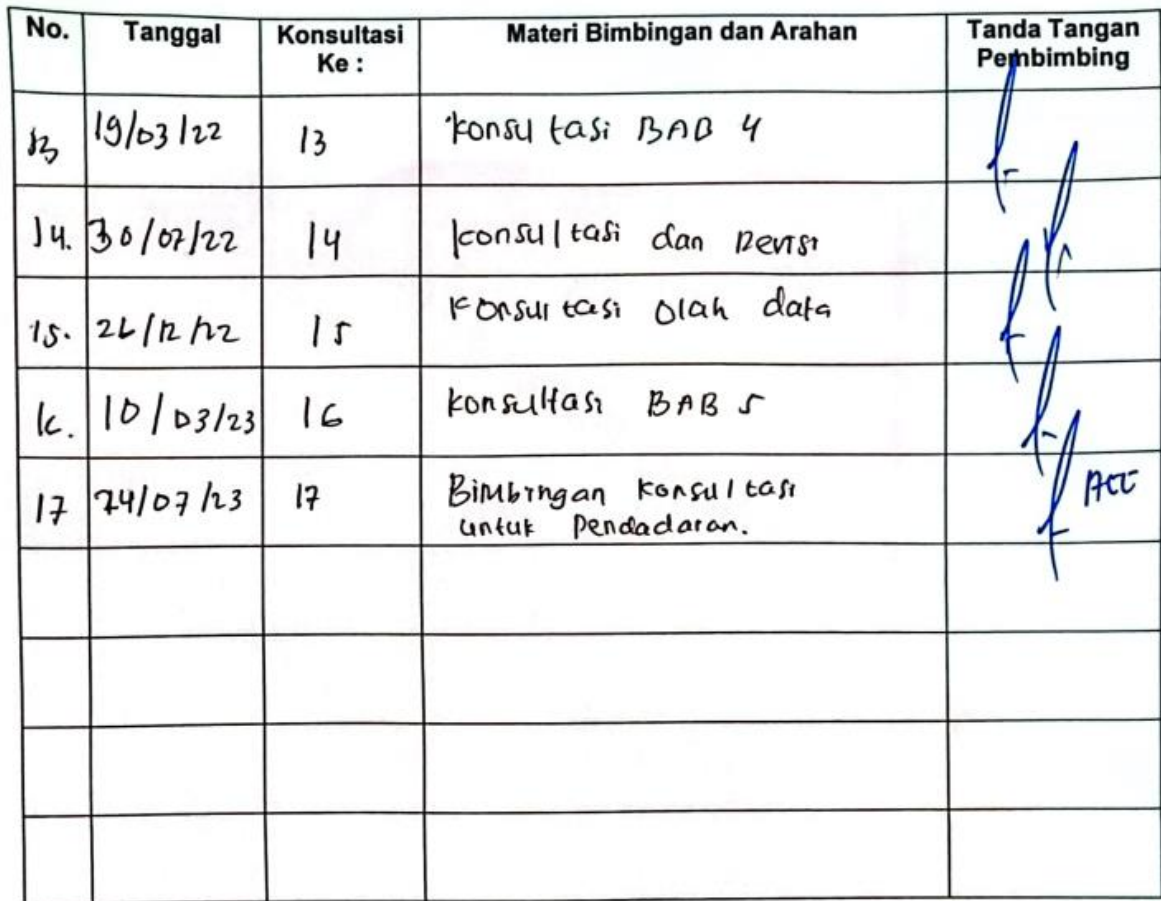 No. Tanggal Konsultasi Ke : Materi Bimbingan dan Arahan Tanda Tangan Pembimbing
13 19/03/22 13 Konsultasi BAB 4
14. 30/07/22 14 konsultasi dan Revisi
15. 26/12/22 15 Konsultasi Olah data
16. 10/03/23 16 konsultasi BAB 5
17 24/07/23 17 Bimbingan konsultasi
untuk Pendadaran. ACC